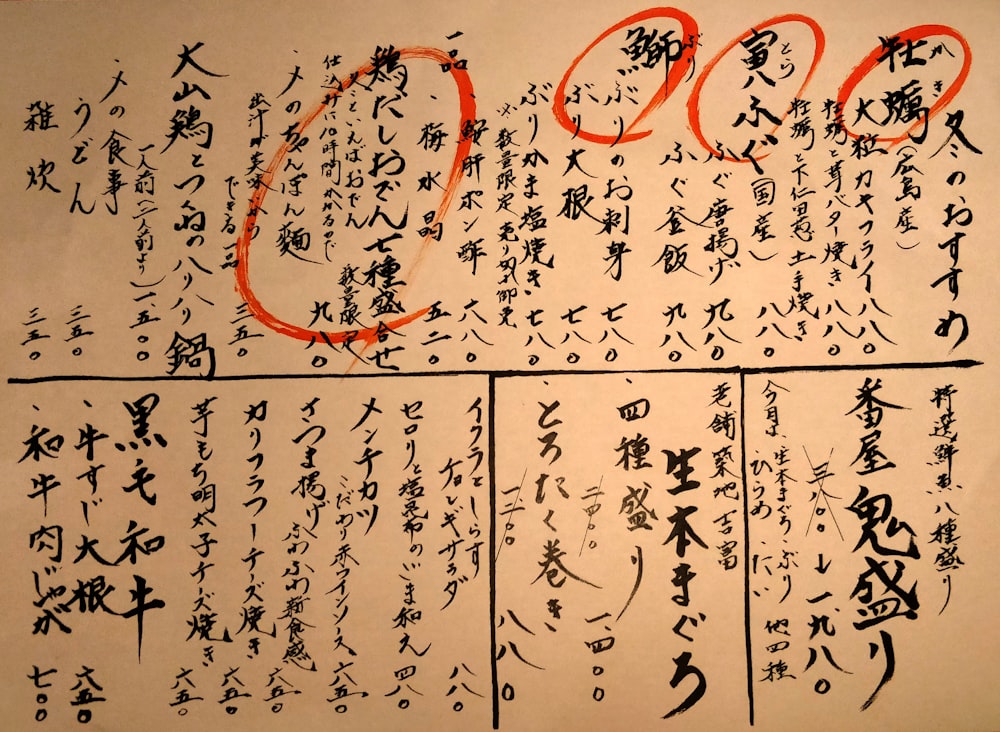 冬のおすすめ
牡蠣（広島産）
かき
大粒カキフライ 八八〇
牡蠣と茸バター焼き 八八〇
牡蠣と下仁田葱土手焼き 八八〇
寅八ふぐ（国産）
とら
ふぐ唐揚げ 九八〇
ふぐ釜飯 九八〇
鰤
ぶり
ぶりのお刺身 七八〇
ぶり大根 七八〇
ぶりかま塩焼き 七八〇
※数量限定 売り切れ御免
一品
鮟肝ポン酢 六八〇
梅水晶 五二〇
鶏だしおでん七種盛合せ 九八〇
数量限定
冬といえばおでん
仕込みに10時間かかるので
〆のちゃんぽん麺 三五〇
出汁が美味いから
できる一品
大山鶏とつくねのハリハリ鍋
一人前（二人前より） 一、五〇〇
〆の食事
うどん 三五〇
雑炊 三五〇
特選鮮魚八種盛り
番屋鬼盛り
三八〇〇 → 一九八〇
今月は、生本まぐろ・ぶり
ひらめ・たい 他四種
老舗築地吉富
生本まぐろ
四種盛り 二四〇〇 一、四〇〇
とろたく巻き 一二〇〇 八八〇
イクラとしらす
チョレギサラダ 八八〇
セロリと塩昆布のごま和え 四八〇
メンチカツ
こだわり赤ワインソース 六五〇
さつま揚げ
ふわふわ新食感 六五〇
カリフラワーチーズ焼き 六五〇
芋もち明太子チーズ焼き 六五〇
黒毛和牛
牛すじ大根 六五〇
和牛肉じゃが 七〇〇